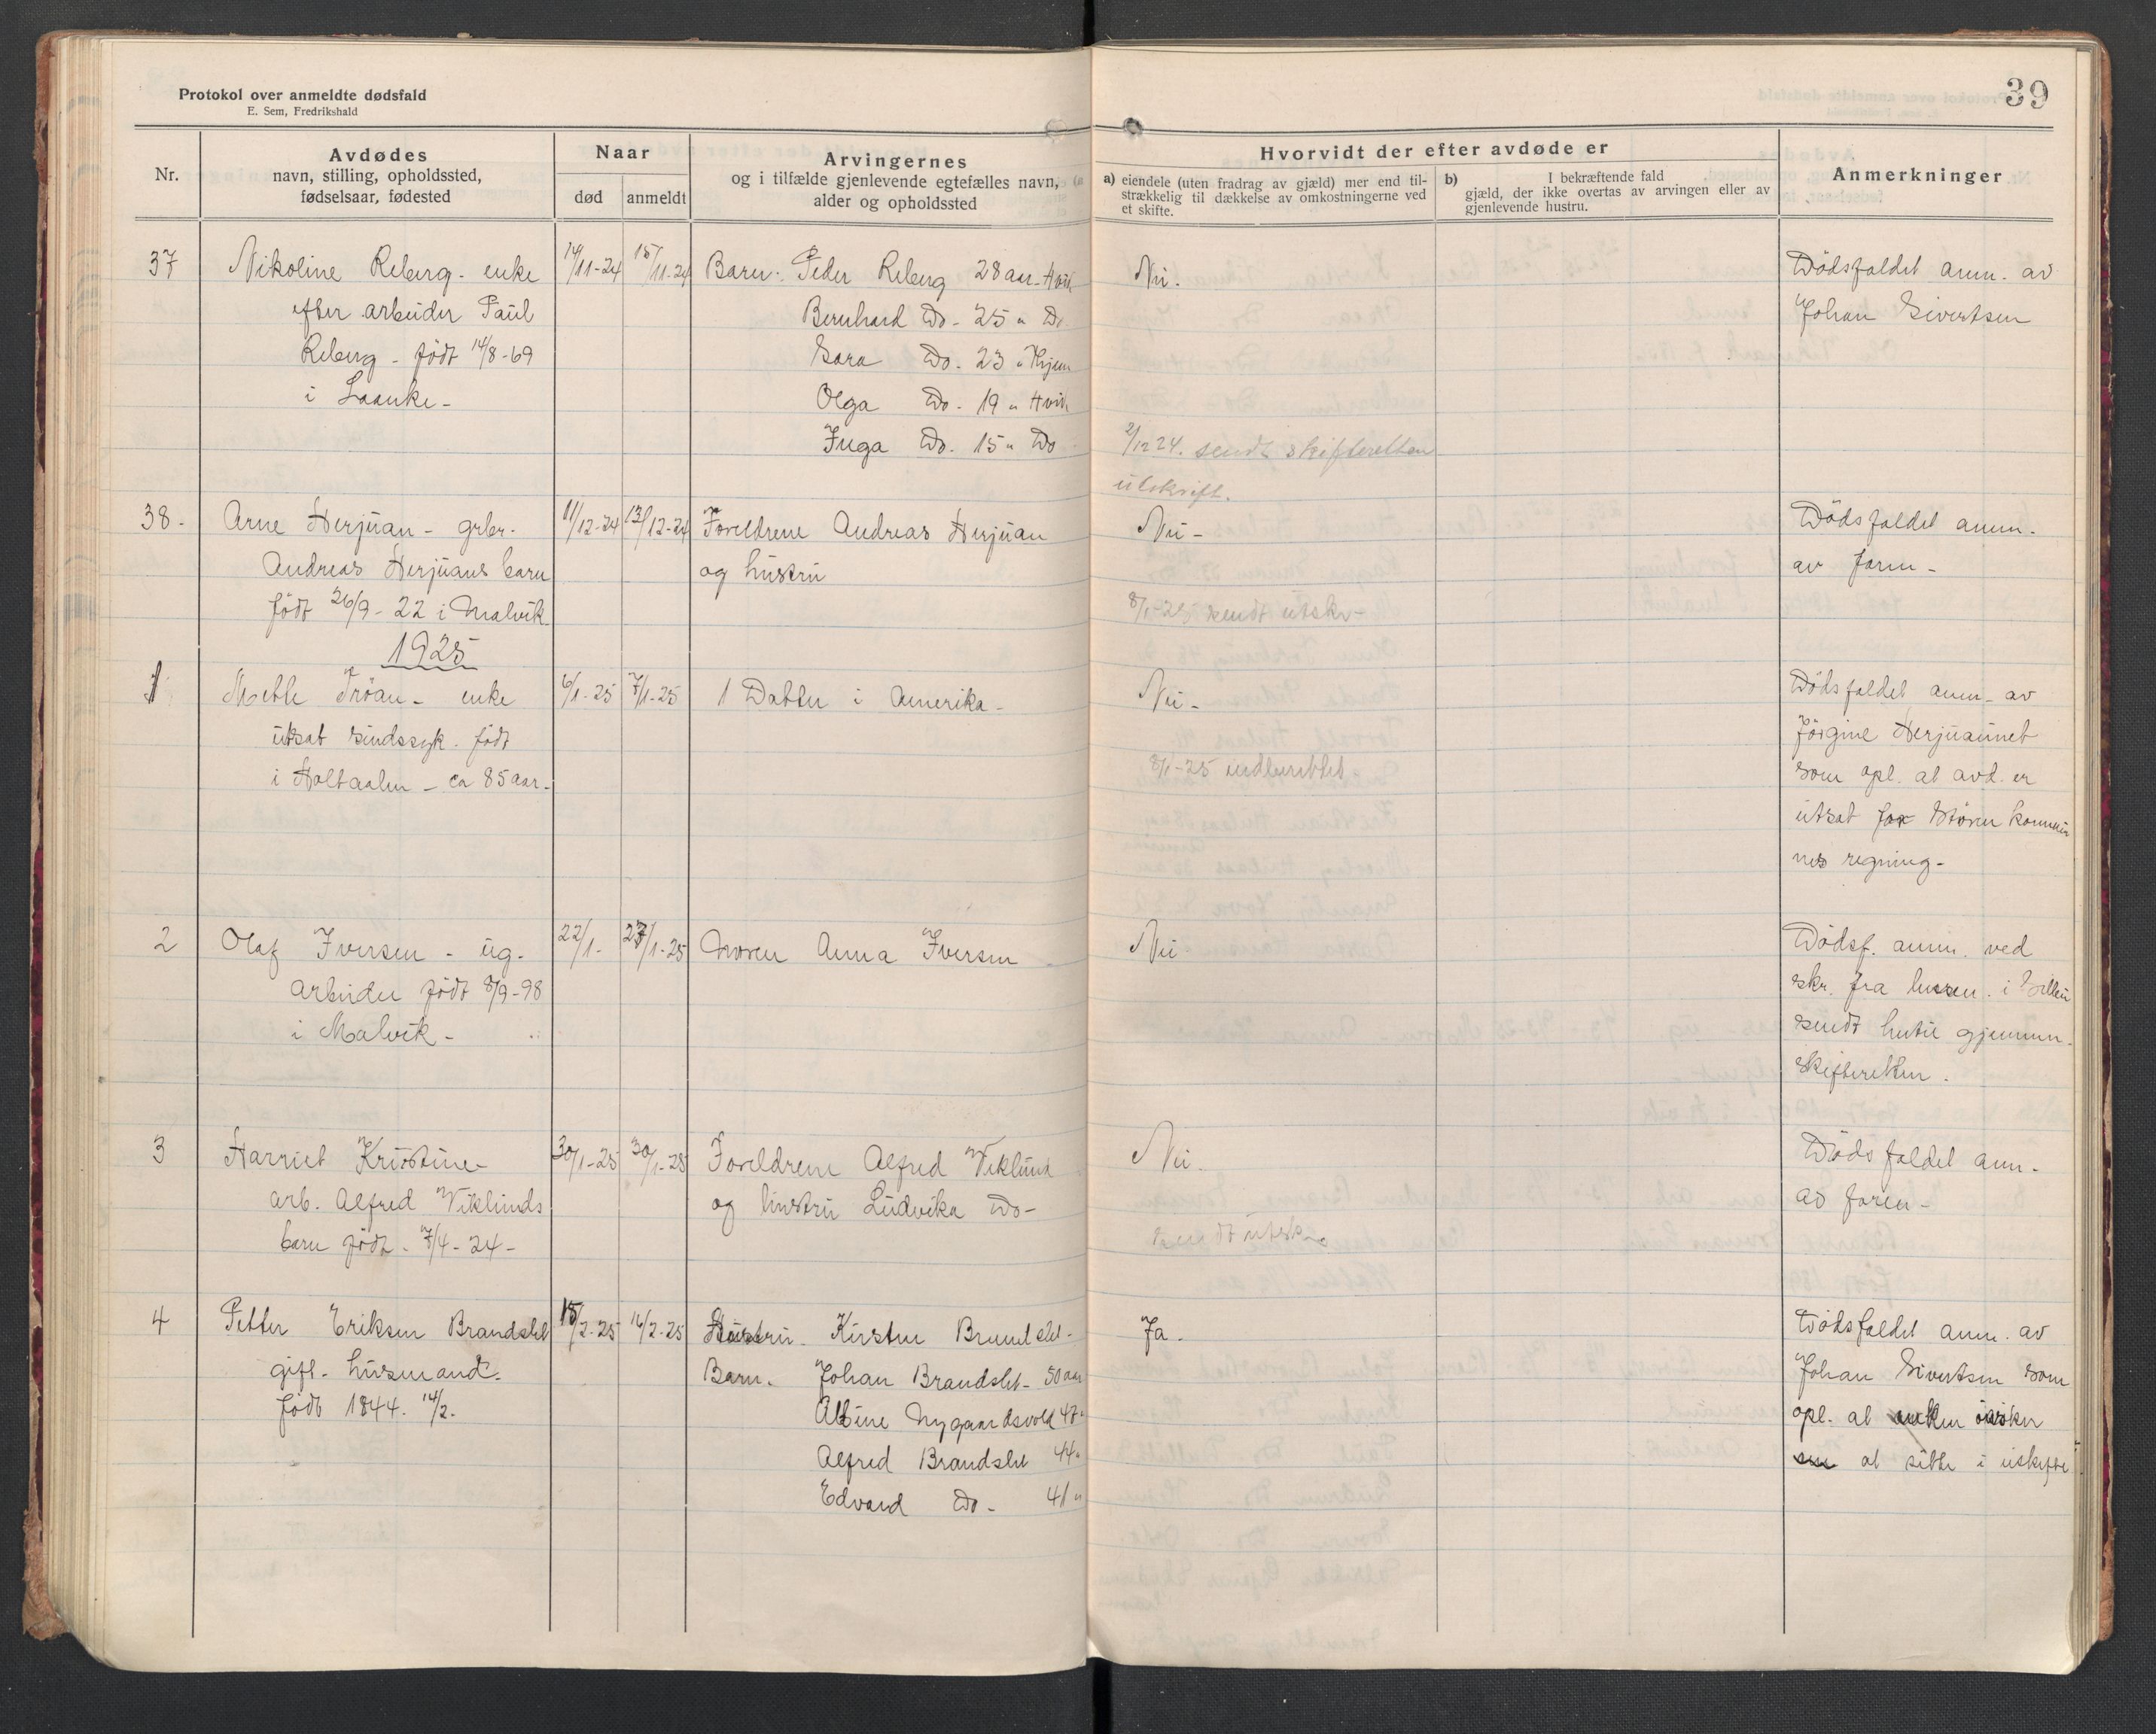 Protokol over anmeldte dødsfald
E. Sem, Fredrikshald
39
Nr.
Avdødes
navn, stilling, opholdssted,
fødselsaar, fødested
Naar
død
anmeldt
Arvingernes
og i tilfælde gjenlevende egtefælles navn,
alder og opholdssted
Hvorvidt der efter avdøde er
a) eiendele (uten fradrag av gjæld) mer end til-
strækkelig til dækkelse av omkostningerne ved
et skifte.
b) I bekræftende fald
gjæld, der ikke overtas av arvingen eller av
gjenlevende hustru.
Anmerkninger
37 Nikoline Reberg - enke 14/11-24 15/11-24 Barn: Peder Reberg 28 aar - Hvik Nei. Dødsfaldet anm. av
efter arbeider Paul Bernhard Do - 25 " Do Johan Sivertsen
Reberg - født 14/8-69 Sara Do. 23 " Hjem
i Laanke - Olga Do - 19 " Hvik
Inga Do. 15 " Do 2/12 24. sendt skifteretten
utskrift.
38 - Arne Herjuan - grbr. 11/12-24 13/12-24 Foreldrene Andreas Herjuan Nei - Dødsfaldet anm.
Andreas Herjuans barn og hustru av faren -
født 26/9-22 i Malvik 8/1-25 sendt utskr -
1925
1 Mette Trøan - enke 6/1-25 7/1-25 1 Datter i Amerika - Nei - Dødsfaldet anm - av
utsat sindssyk. født Jørgine Herjuaunet
i Holtaalen - ca 85 aar - 8/1-25 indberettet som opl. at avd. er
utsat for Støren kommu
nes regning -
2 Olaf Iversen - ug. 22/1 - 27/1-25 Moren Anna Iversen Nei Dødsf. anm. ved
arbeider født 8/9-98 skr. fra lensm. i
i Malvik - sendt hertil gjennem
skifteretten.
3 Harriet Kristine - 30/1-25 30/1-25 Foreldrene Alfred Viklund Nei. Dødsfaldet anm -
arb. Alfred Viklunds og hustru Ludvika Do - av faren -
barn født - 7/4-24 - sendt utskr
4 Petter Eriksen Brandslet 15/2-25 16/2-25 Hustru - Kirsten Brandslet - Ja. Dødsfaldet anm. av
gift - husmand. Barn. Johan Brandslet - 50 aar Johan Sivertsen som
født 1844. 14/2. Albine Nygaardsvold 47 " opl. at enken ønsker
Alfred Brandslet 44 " at sitte i uskifte
Edvard Do - 41 "